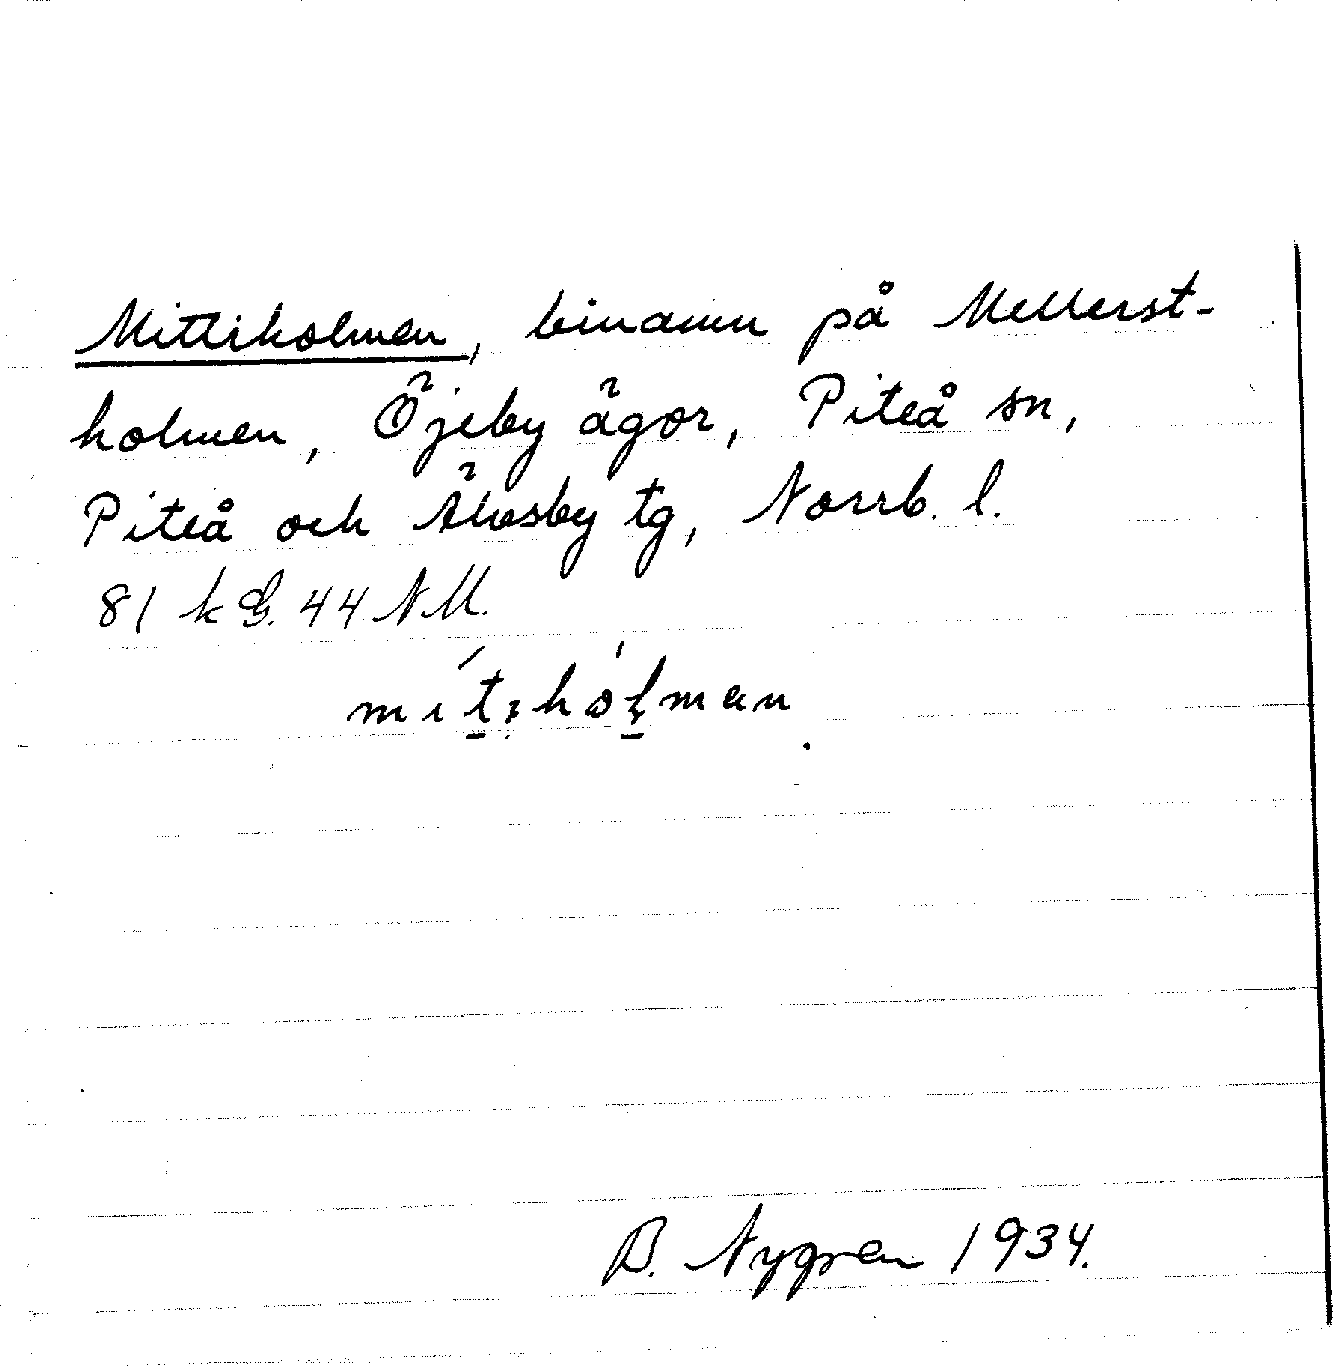 Mittiholmen, binamn på Mellerst-
holmen, Öjeby ägor, Piteå sn,
Piteå och Älvsby tg, Norrb. l.
81 k G. 44 NM.
B. Nygren 1934.